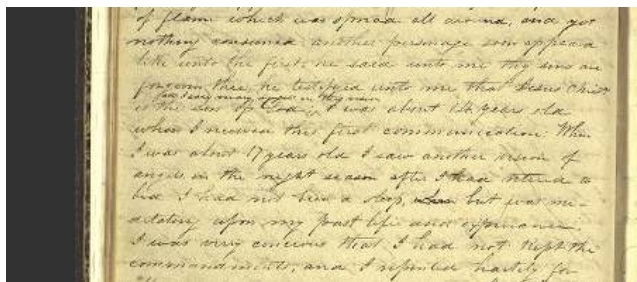 of flame which was spread all around, and yet
nothing consumed another personage soon appeard
like unto the first: he said unto me thy sins are
forgiven thee, he testifyed unto me that Jesus Christ
is the son of God; I was about 14 years old
when I received this first communication; When
I was about 17 years old I saw another vision of
angels in the night season after I had retired to
bed I had not been a sleep, but was me-
ditating upon my past life and experience.
I was very concious that I had not kept the
commandments, and I repented hartily for